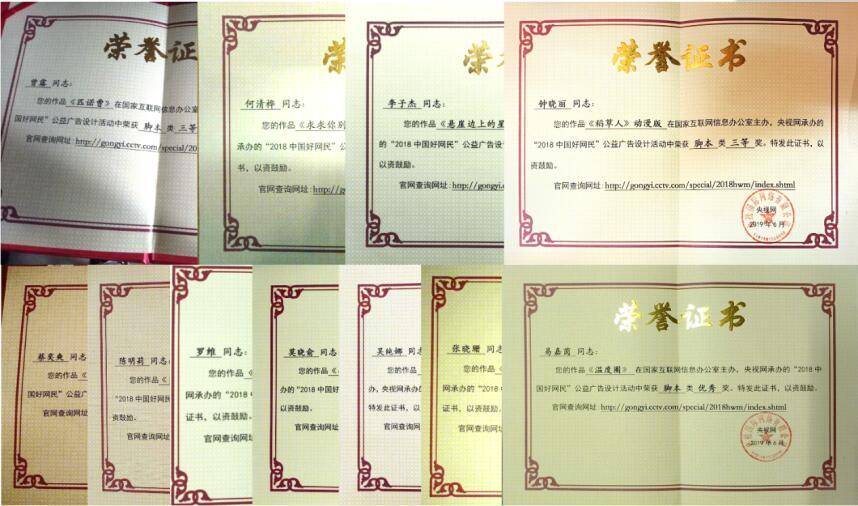 荣誉证书
曾露 同志:
您的作品《匹诺曹》在国家互联网信息办公室
国好网民”公益广告设计活动中荣获 脚本 类 三等
官网查询网址:http://gongyi.cctv.com/special/20
何清桦 同志:
您的作品《永永你别
承办的“2018中国好网民”
书,以资鼓励。
官网查询网址:http://gong
李子杰 同志:
您的作品《悬崖边上的星
的“2018中国好网民”公益广告设
以资鼓励。
官网查询网址:http://gongyi.c
荣誉证书
钟晓丽 同志:
您的作品《稻草人》动漫版 在国家互联网信息办公室主办,央视网承办的
“2018中国好网民”公益广告设计活动中荣获 脚本 类 三等 奖。特发此证书,以
资鼓励。
官网查询网址:http://gongyi.cctv.com/special/2018hwm/index.shtml
央视网
2019年6月
蔡奕爽 同志:
您的作品《
国好网民”公益广
官网查询网址
陈明莉 同志:
您的作品《
网承办的“2018
资鼓励。
官网查询
罗维 同志:
您的作品《
网承办的“201
证书,以资鼓励。
官网查询网
莫晓俞 同志:
您的作品《
办的“2018中国好
以资鼓励。
官网查询网址
吴纯娜 同志:
您的作品《
办,央视网承办的
特发此证书,以
官网查询网
张晓珊 同志:
您的作品《
网承办的“2018中
证书,以资鼓励。
官网查询网址
荣誉证书
易嘉茵 同志:
您的作品《温度圈》 在国家互联网信息办公室主办,央视网承办的“2018中
国好网民”公益广告设计活动中荣获 脚本 类 优秀 奖。特发此证书,以资鼓励。
官网查询网址:http://gongyi.cctv.com/special/2018hwm/index.shtml
央视网
2019年6月